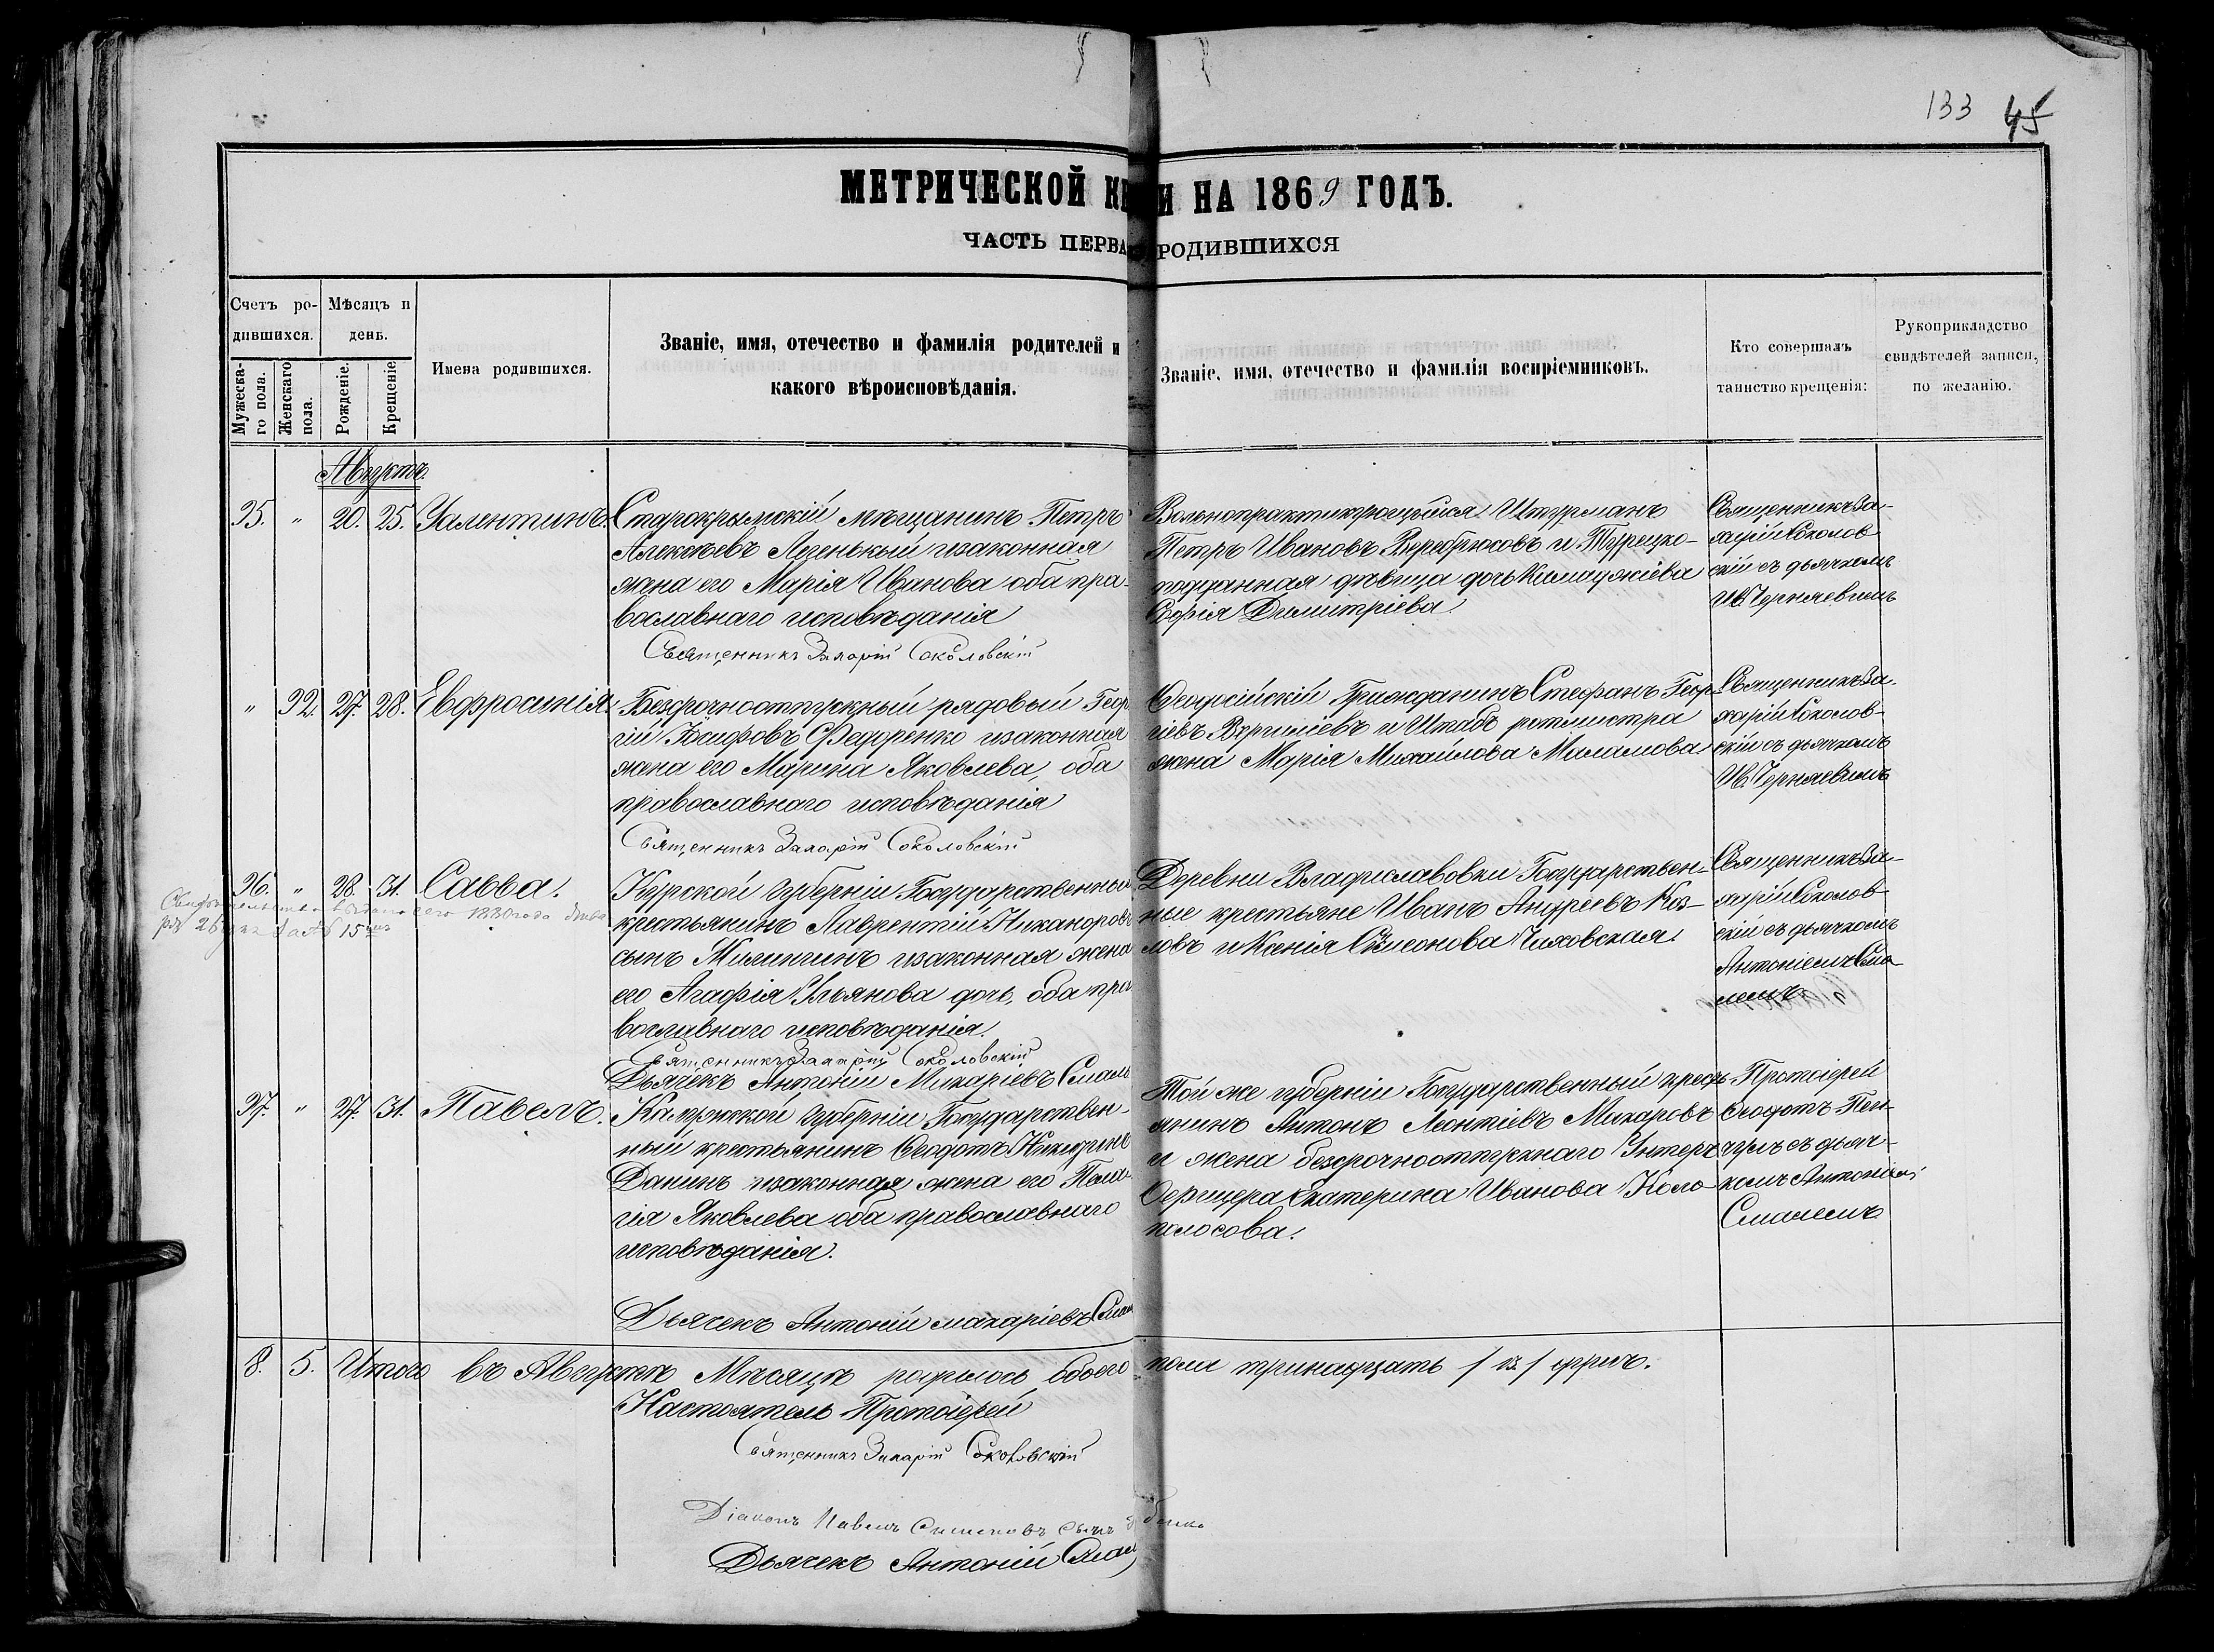 133 45
МЕТРИЧЕСКОЙ КН И НА 1869 ГОДЪ.
ЧАСТЬ ПЕРВА РОДИВШИХСЯ
Счетъ ро-
дившихся.
Мужеска-
го пола.
Женскаго
пола.
Мѣсяцъ и
день.
Рожденіе.
Крещеніе.
Имена родившихся.
Званіе, имя, отечество и фамилія родителей и
какого вѣроисповѣданія.
Званіе, имя, отечество и фамилія воспріемниковъ.
Кто совершалъ
таинство крещенія:
Рукоприкладство
свидѣтелей записи,
по желанію.
Августъ
35. " 20. 25. Валентинъ.
Старокрымскій мѣщанинъ Петръ
Алексѣевъ Луенькый и законная
жена его Марія Иванова оба пра-
вославнаго исповѣданія
Священникъ Захарій Соколовскій
Вольнопрактикующійся Штурманъ
Петръ Ивановъ Веребрюсовъ и Турецко-
подданная дѣвица дочь
Софія Димитріева.
Священникъ За-
харій Соколов-
скій съ дьячкомъ
Ив. Черняевымъ
" 32. 27. 28. Евфросинія.
Безсрочноотпускный рядовый Геор
гій Іосифовъ Федоренко и законная
жена его Марина Яковлева, оба
православнаго исповѣданія
Священникъ Захарій Соколовскій
Феодосійскій Гражданинъ Стефанъ Геор-
гіевъ Вергиліевъ и Штабъ ротмистра
жена Марія Михаилова Мамамова
Священникъ За-
харій Соколов-
скій съ дьячкомъ
Ив. Черняевымъ
36. " 28. 31. Савва.
Свидѣтельство выдано сего 1880 года
26 дня за № 15
Курской губерніи Государственный
крестьянинъ Лаврентій Никаноровъ
сынъ и законная жена
его Агафія Ульянова дочь, оба пра
вославнаго исповѣданія.
Священникъ Захарій Соколовскій
Дьячекъ Антоній Макаріевъ Смаль
Деревни Владиславовки Государствен-
ные крестьяне Иванъ Андреевъ Коз-
ловъ и Ксенія Симеонова Чиховская.
Священникъ За-
харій Соколов-
скій съ дьячкомъ
Антоніемъ Сма-
лемъ
37. " 27. 31. Павелъ.
Калужской губерніи Государствен-
ный крестьянинъ Феодотъ Никитинъ
Данинъ и законная жена его Пела-
гія Яковлева оба православнаго
исповѣданія.
Дьячекъ Антоній Макаріевъ Смал
Той же губерніи Государственный кресть-
янинъ Антонъ Леонтіевъ Макаровъ
и жена безсрочноотпускнаго Унтеръ
Офицера Екатерина Иванова Коло-
колосова.
Протоіерей
Феодотъ Пен-
чулъ съ дьяч-
комъ Антоніемъ
Смалемъ
8. 5. Итого въ Августѣ Мѣсяцѣ родилось обоего пола тринадцать /13/ душъ.
Настоятель Протоіерей
Священникъ Захарій Соколовскій
Діаконъ Павелъ сынъ
Дьячекъ Антоній Смал